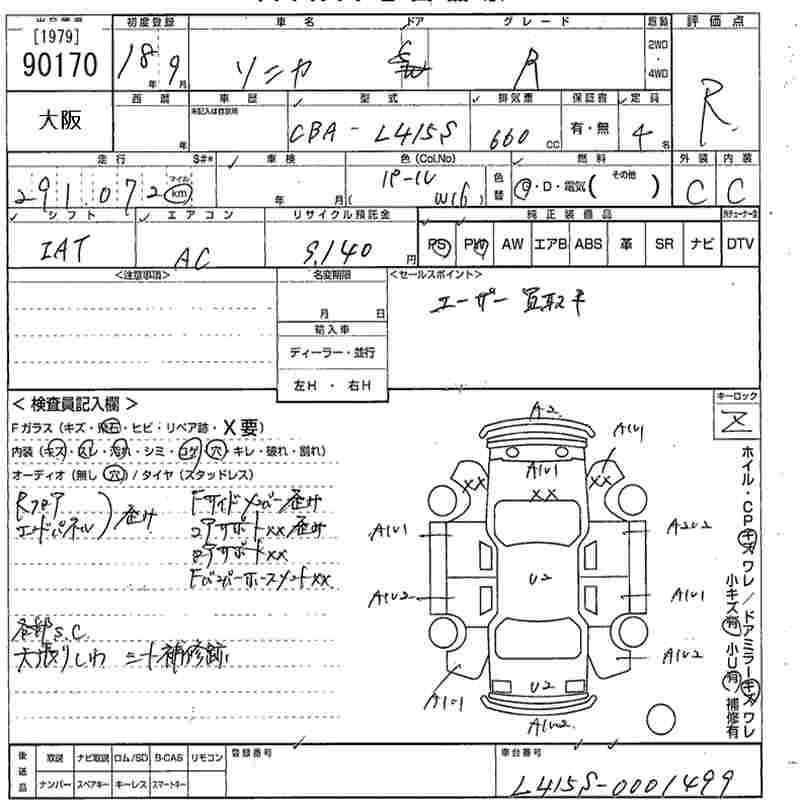 [1979]
90170
初度登録 車名 ドア グレード 評価点
18年 9月 ソニカ R 2WD・4WD R
大阪
西暦 車歴 型式 排気量 保証書 定員
年 未記入は自家用 CBA-L415S 660cc 有・無 4名
走行 S#* 車検 色(Col.No) 燃料 外装 内装
291,072 マイル km 年 月 パール W16 色替 G・D・電気( その他 ) C C
シフト エアコン リサイクル預託金 純正装備品
IAT AC 9,140円 PS PW AW エアB ABS 革 SR ナビ DTV
<注意事項> 名変期限 <セールスポイント>
月 日 ユーザー買取車
輸入車
ディーラー・並行
左H ・ 右H
< 検査員記入欄 >
キーロック
Fガラス(キズ・飛石・ヒビ・リペア跡・X要)
内装(キズ・スレ・汚れ・シミ・コゲ・穴・キレ・破れ・割れ)
オーディオ(無し・穴)/タイヤ(スタッドレス)
Rフロア
エンドパネル
歪み
Fサイドメンバー歪み
コアサポートXX歪み
FバンパーホースメントXX
各部S.C.
天張りしわ ニート補修跡
A2
A1U1
A1U1
XX
XX
XX
A1U1
A2U2
A1U2
U2
A1U1
A1U2
A1U1
U2
A1U2
ホイル・CPキズワレ/ドアミラーキズワレ
小キズ(有) 小U(有) 補修有
後送品 取説 ナビ取説 ロム/SD B-CAS リモコン 登録番号 車台番号
ナンバー スペアキー キーレス スマートキー L415S-0001499